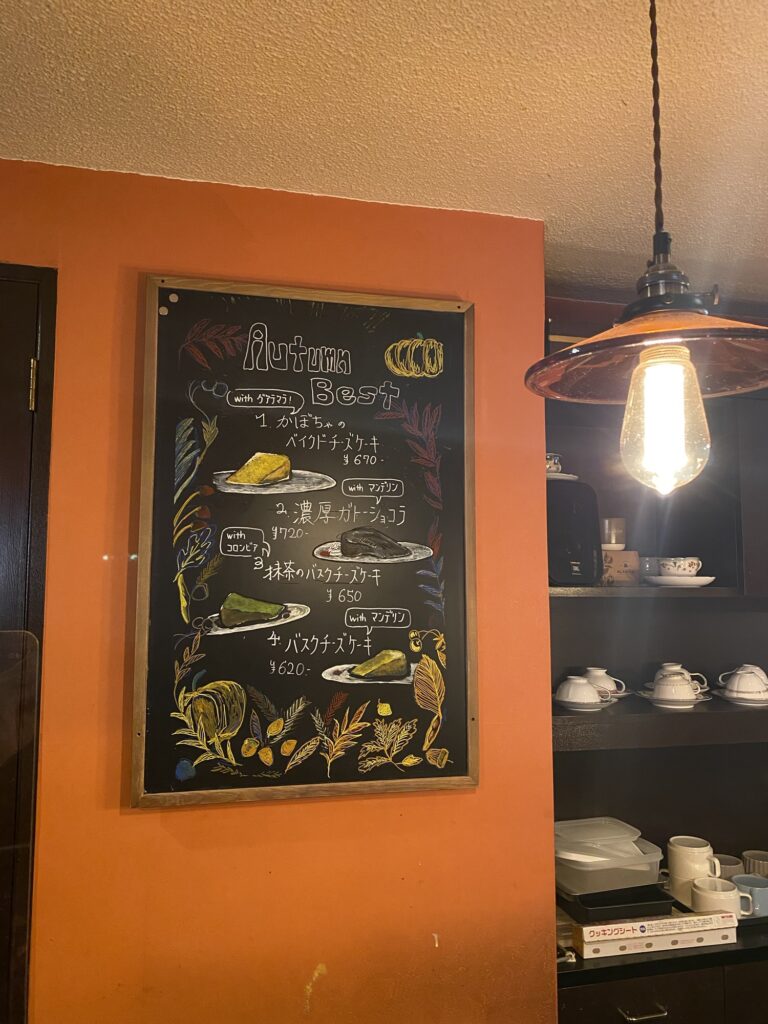 Autumn
Best
with グアテマラ!
1. かぼちゃの
ベイクドチーズケーキ
¥670-
with マンデリン
2. 濃厚ガトーショコラ
¥720-
with
コロンビア
3. 抹茶のバスクチーズケーキ
¥650
with マンデリン
4. バスクチーズケーキ
¥620-
クッキングシート